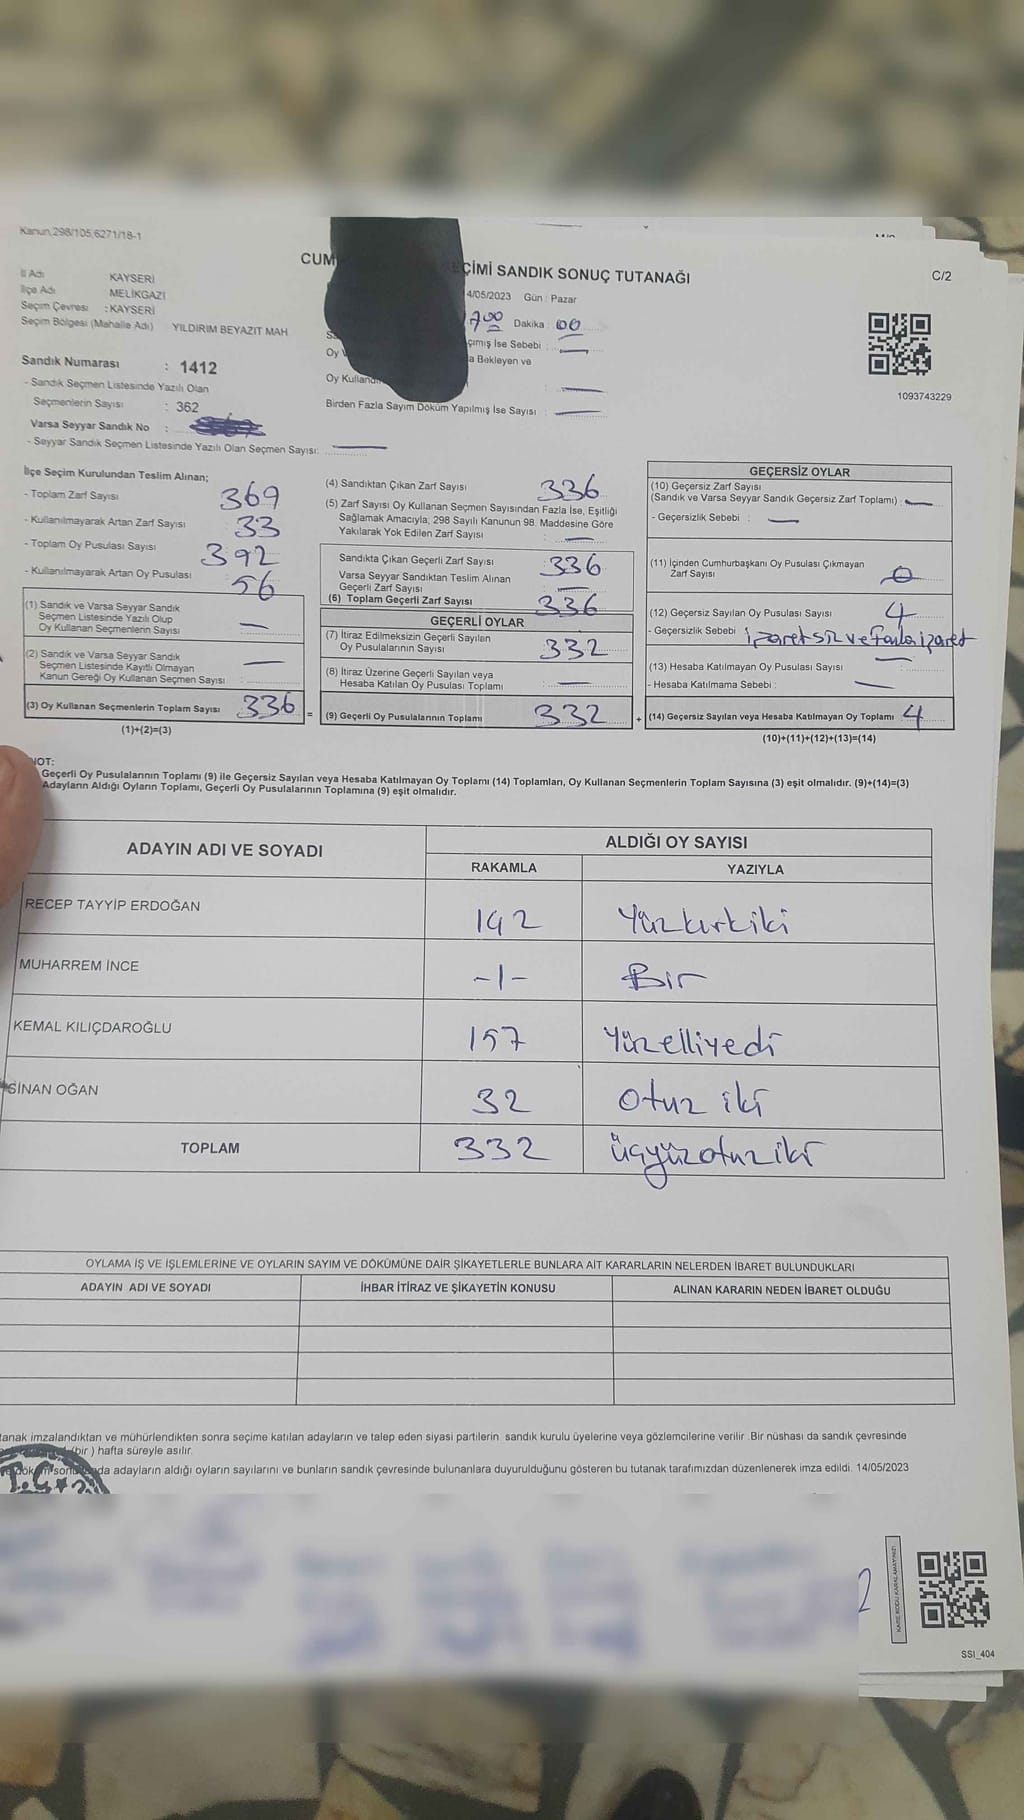 Kanun,298/105,6271/18-1
CUM
ÇİMİ SANDIK SONUÇ TUTANAĞI
C/2
İl Adı KAYSERİ
İlçe Adı MELİKGAZİ
Seçim Çevresi : KAYSERİ
Seçim Bölgesi (Mahalle Adı) YILDIRIM BEYAZIT MAH
4/05/2023 Gün : Pazar
Dakika : 00
çmış İse Sebebi :
a Bekleyen ve
Oy Kullandı
Birden Fazla Sayım Döküm Yapılmış İse Sayısı :
1093743229
Sandık Numarası : 1412
- Sandık Seçmen Listesinde Yazılı Olan
Seçmenlerin Sayısı : 362
Varsa Seyyar Sandık No :
- Seyyar Sandık Seçmen Listesinde Yazılı Olan Seçmen Sayısı:
İlçe Seçim Kurulundan Teslim Alınan;
- Toplam Zarf Sayısı 369
- Kullanılmayarak Artan Zarf Sayısı 33
- Toplam Oy Pusulası Sayısı 392
- Kullanılmayarak Artan Oy Pusulası 56
(1) Sandık ve Varsa Seyyar Sandık
Seçmen Listesinde Yazılı Olup
Oy Kullanan Seçmenlerin Sayısı —
(2) Sandık ve Varsa Seyyar Sandık
Seçmen Listesinde Kayıtlı Olmayan
Kanun Gereği Oy Kullanan Seçmen Sayısı —
(3) Oy Kullanan Seçmenlerin Toplam Sayısı 336 =
(1)+(2)=(3)
(4) Sandıktan Çıkan Zarf Sayısı 336
(5) Zarf Sayısı Oy Kullanan Seçmen Sayısından Fazla İse, Eşitliği
Sağlamak Amacıyla; 298 Sayılı Kanunun 98. Maddesine Göre
Yakılarak Yok Edilen Zarf Sayısı : —
Sandıkta Çıkan Geçerli Zarf Sayısı 336
Varsa Seyyar Sandıktan Teslim Alınan
Geçerli Zarf Sayısı —
(6) Toplam Geçerli Zarf Sayısı 336
GEÇERLİ OYLAR
(7) İtiraz Edilmeksizin Geçerli Sayılan
Oy Pusulalarının Sayısı 332
(8) İtiraz Üzerine Geçerli Sayılan veya
Hesaba Katılan Oy Pusulası Toplamı —
(9) Geçerli Oy Pusulalarının Toplamı 332 +
GEÇERSİZ OYLAR
(10) Geçersiz Zarf Sayısı
(Sandık ve Varsa Seyyar Sandık Geçersiz Zarf Toplamı) : —
- Geçersizlik Sebebi : —
(11) İçinden Cumhurbaşkanı Oy Pusulası Çıkmayan
Zarf Sayısı
(12) Geçersiz Sayılan Oy Pusulası Sayısı 4
- Geçersizlik Sebebi işaretsiz ve fazla işaret
(13) Hesaba Katılmayan Oy Pusulası Sayısı —
- Hesaba Katılmama Sebebi : —
(14) Geçersiz Sayılan veya Hesaba Katılmayan Oy Toplamı 4
(10)+(11)+(12)+(13)=(14)
NOT:
Geçerli Oy Pusulalarının Toplamı (9) ile Geçersiz Sayılan veya Hesaba Katılmayan Oy Toplamı (14) Toplamları, Oy Kullanan Seçmenlerin Toplam Sayısına (3) eşit olmalıdır. (9)+(14)=(3)
Adayların Aldığı Oyların Toplamı, Geçerli Oy Pusulalarının Toplamına (9) eşit olmalıdır.
ADAYIN ADI VE SOYADI
ALDIĞI OY SAYISI
RAKAMLA YAZIYLA
RECEP TAYYİP ERDOĞAN 142 Yüzkırkiki
MUHARREM İNCE -1- Bir
KEMAL KILIÇDAROĞLU 157 Yüzelliyedi
SİNAN OĞAN 32 Otuz iki
TOPLAM 332 üçyüzotuziki
OYLAMA İŞ VE İŞLEMLERİNE VE OYLARIN SAYIM VE DÖKÜMÜNE DAİR ŞİKAYETLERLE BUNLARA AİT KARARLARIN NELERDEN İBARET BULUNDUKLARI
ADAYIN ADI VE SOYADI İHBAR İTİRAZ VE ŞİKAYETİN KONUSU ALINAN KARARIN NEDEN İBARET OLDUĞU
tanak imzalandıktan ve mühürlendikten sonra seçime katılan adayların ve talep eden siyasi partilerin sandık kurulu üyelerine veya gözlemcilerine verilir. Bir nüshası da sandık çevresinde
(bir ) hafta süreyle asılır.
da adayların aldığı oyların sayılarını ve bunların sandık çevresinde bulunanlara duyurulduğunu gösteren bu tutanak tarafımızdan düzenlenerek imza edildi. 14/05/2023
T.C.
KARE KODU KARALAMAYINIZ!
SSI_404